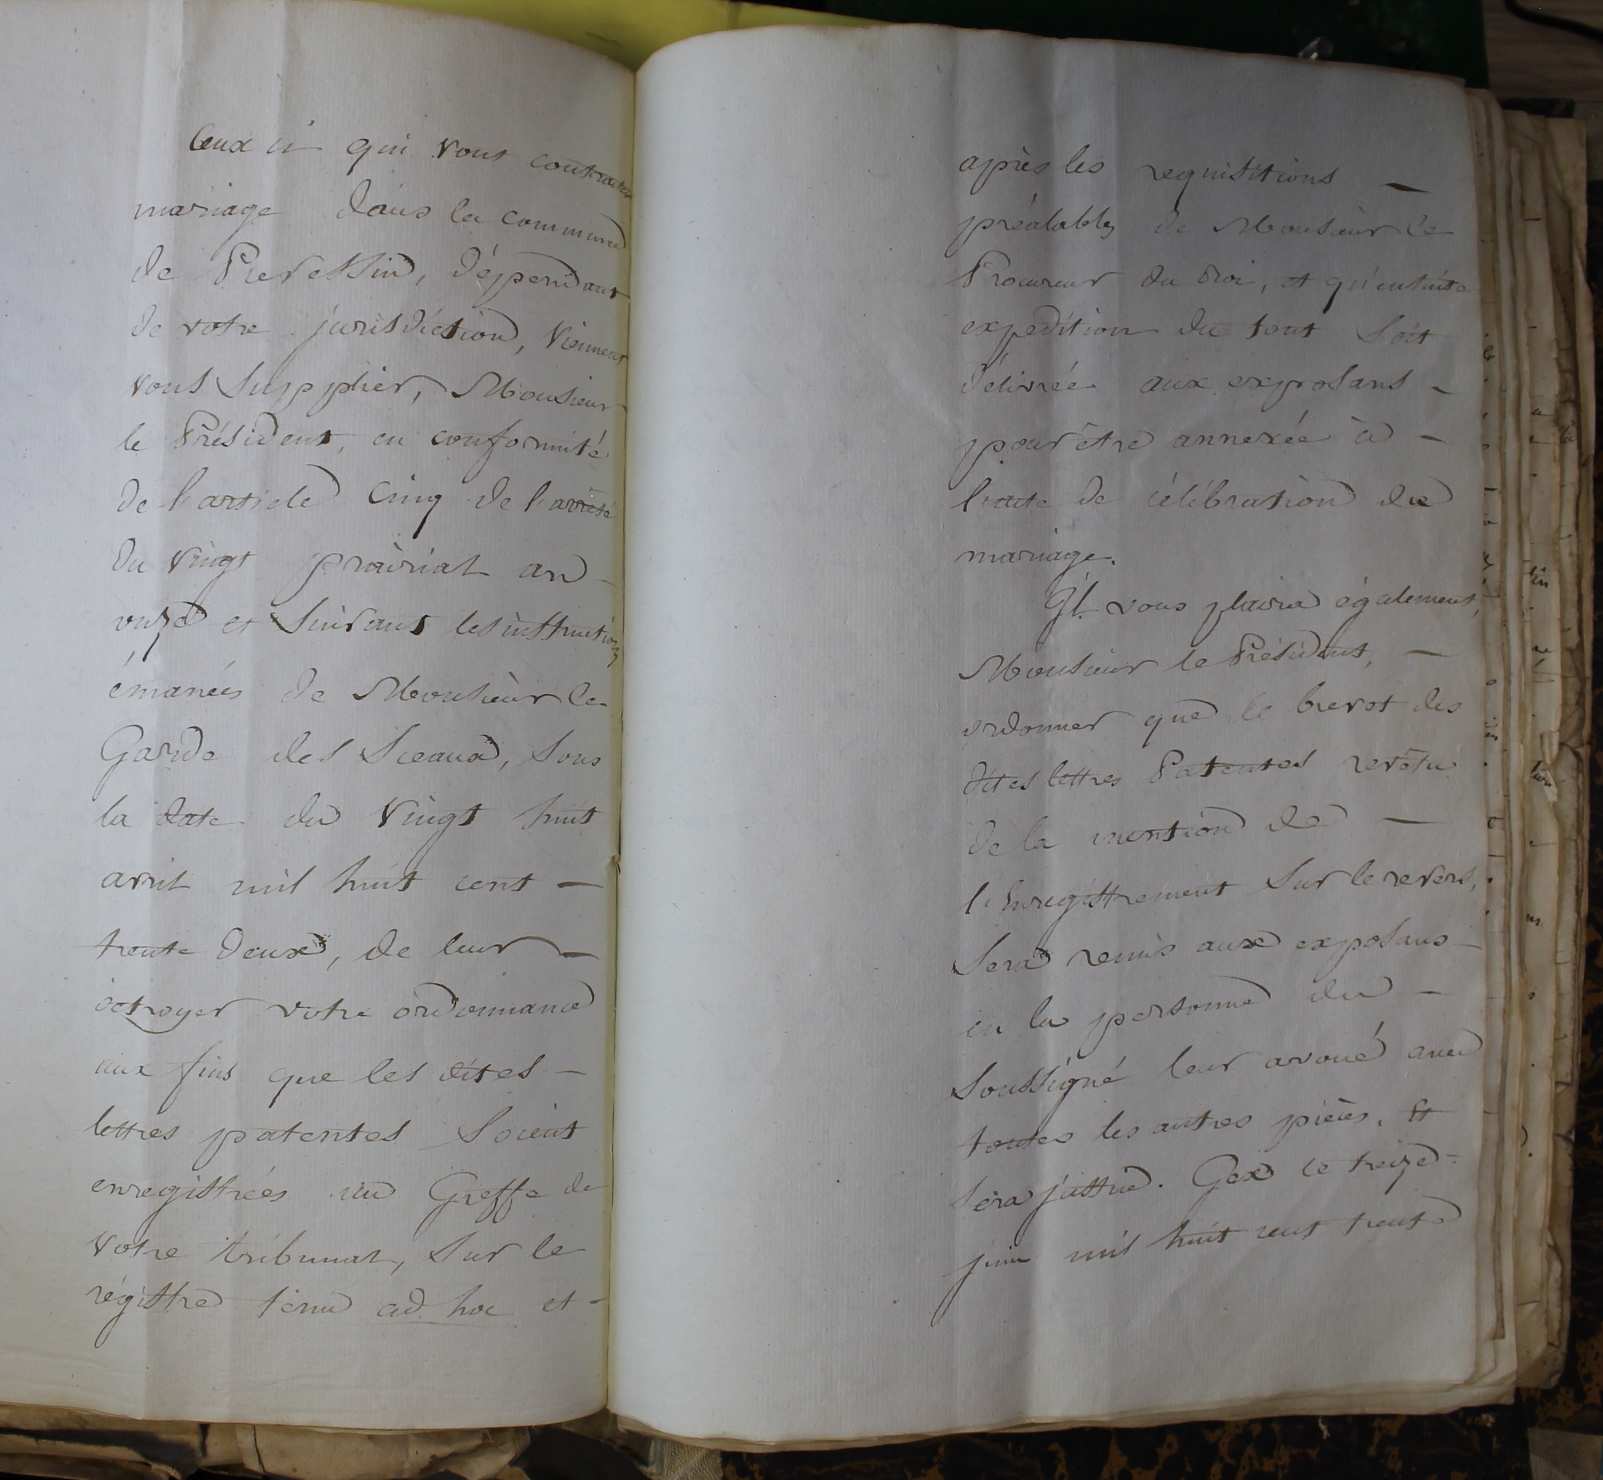 Ceux ci qui vont contracter
mariage dans la commune
de Prevessin, dépendant
de votre jurisdiction, viennent
vous supplier, Monsieur
le Président, en conformité
de l'article cinq de l'arrêté
du vingt prairial an
onze et suivant les instructions
émanées de Monsieur le
Garde des Sceaux, sous
la date du vingt huit
avril mil huit cent —
trente deux, de leur —
octroyer votre ordonnance
aux fins que les dites —
lettres patentes soient
enregistrées au Greffe de
votre tribunal, sur le
régistre tenu ad hoc et —
après les requisitions —
préalables de Monsieur le
Procureur du Roi, et qu'ensuite
expedition du tout soit
délivrée aux exposans —
pour être annexée à —
l'acte de célébration du
mariage.
Il vous plaira également,
Monsieur le Président, —
ordonner que le brevet des
dites lettres Patentes revêtu
de la mention de —
l'Enregistrement sur le revers,
sera remis aux exposans —
en la personne du —
soussigné leur avoué avec
toutes les autres pièces. Et
sera justice. Gex ce treize
juin mil huit cent trente